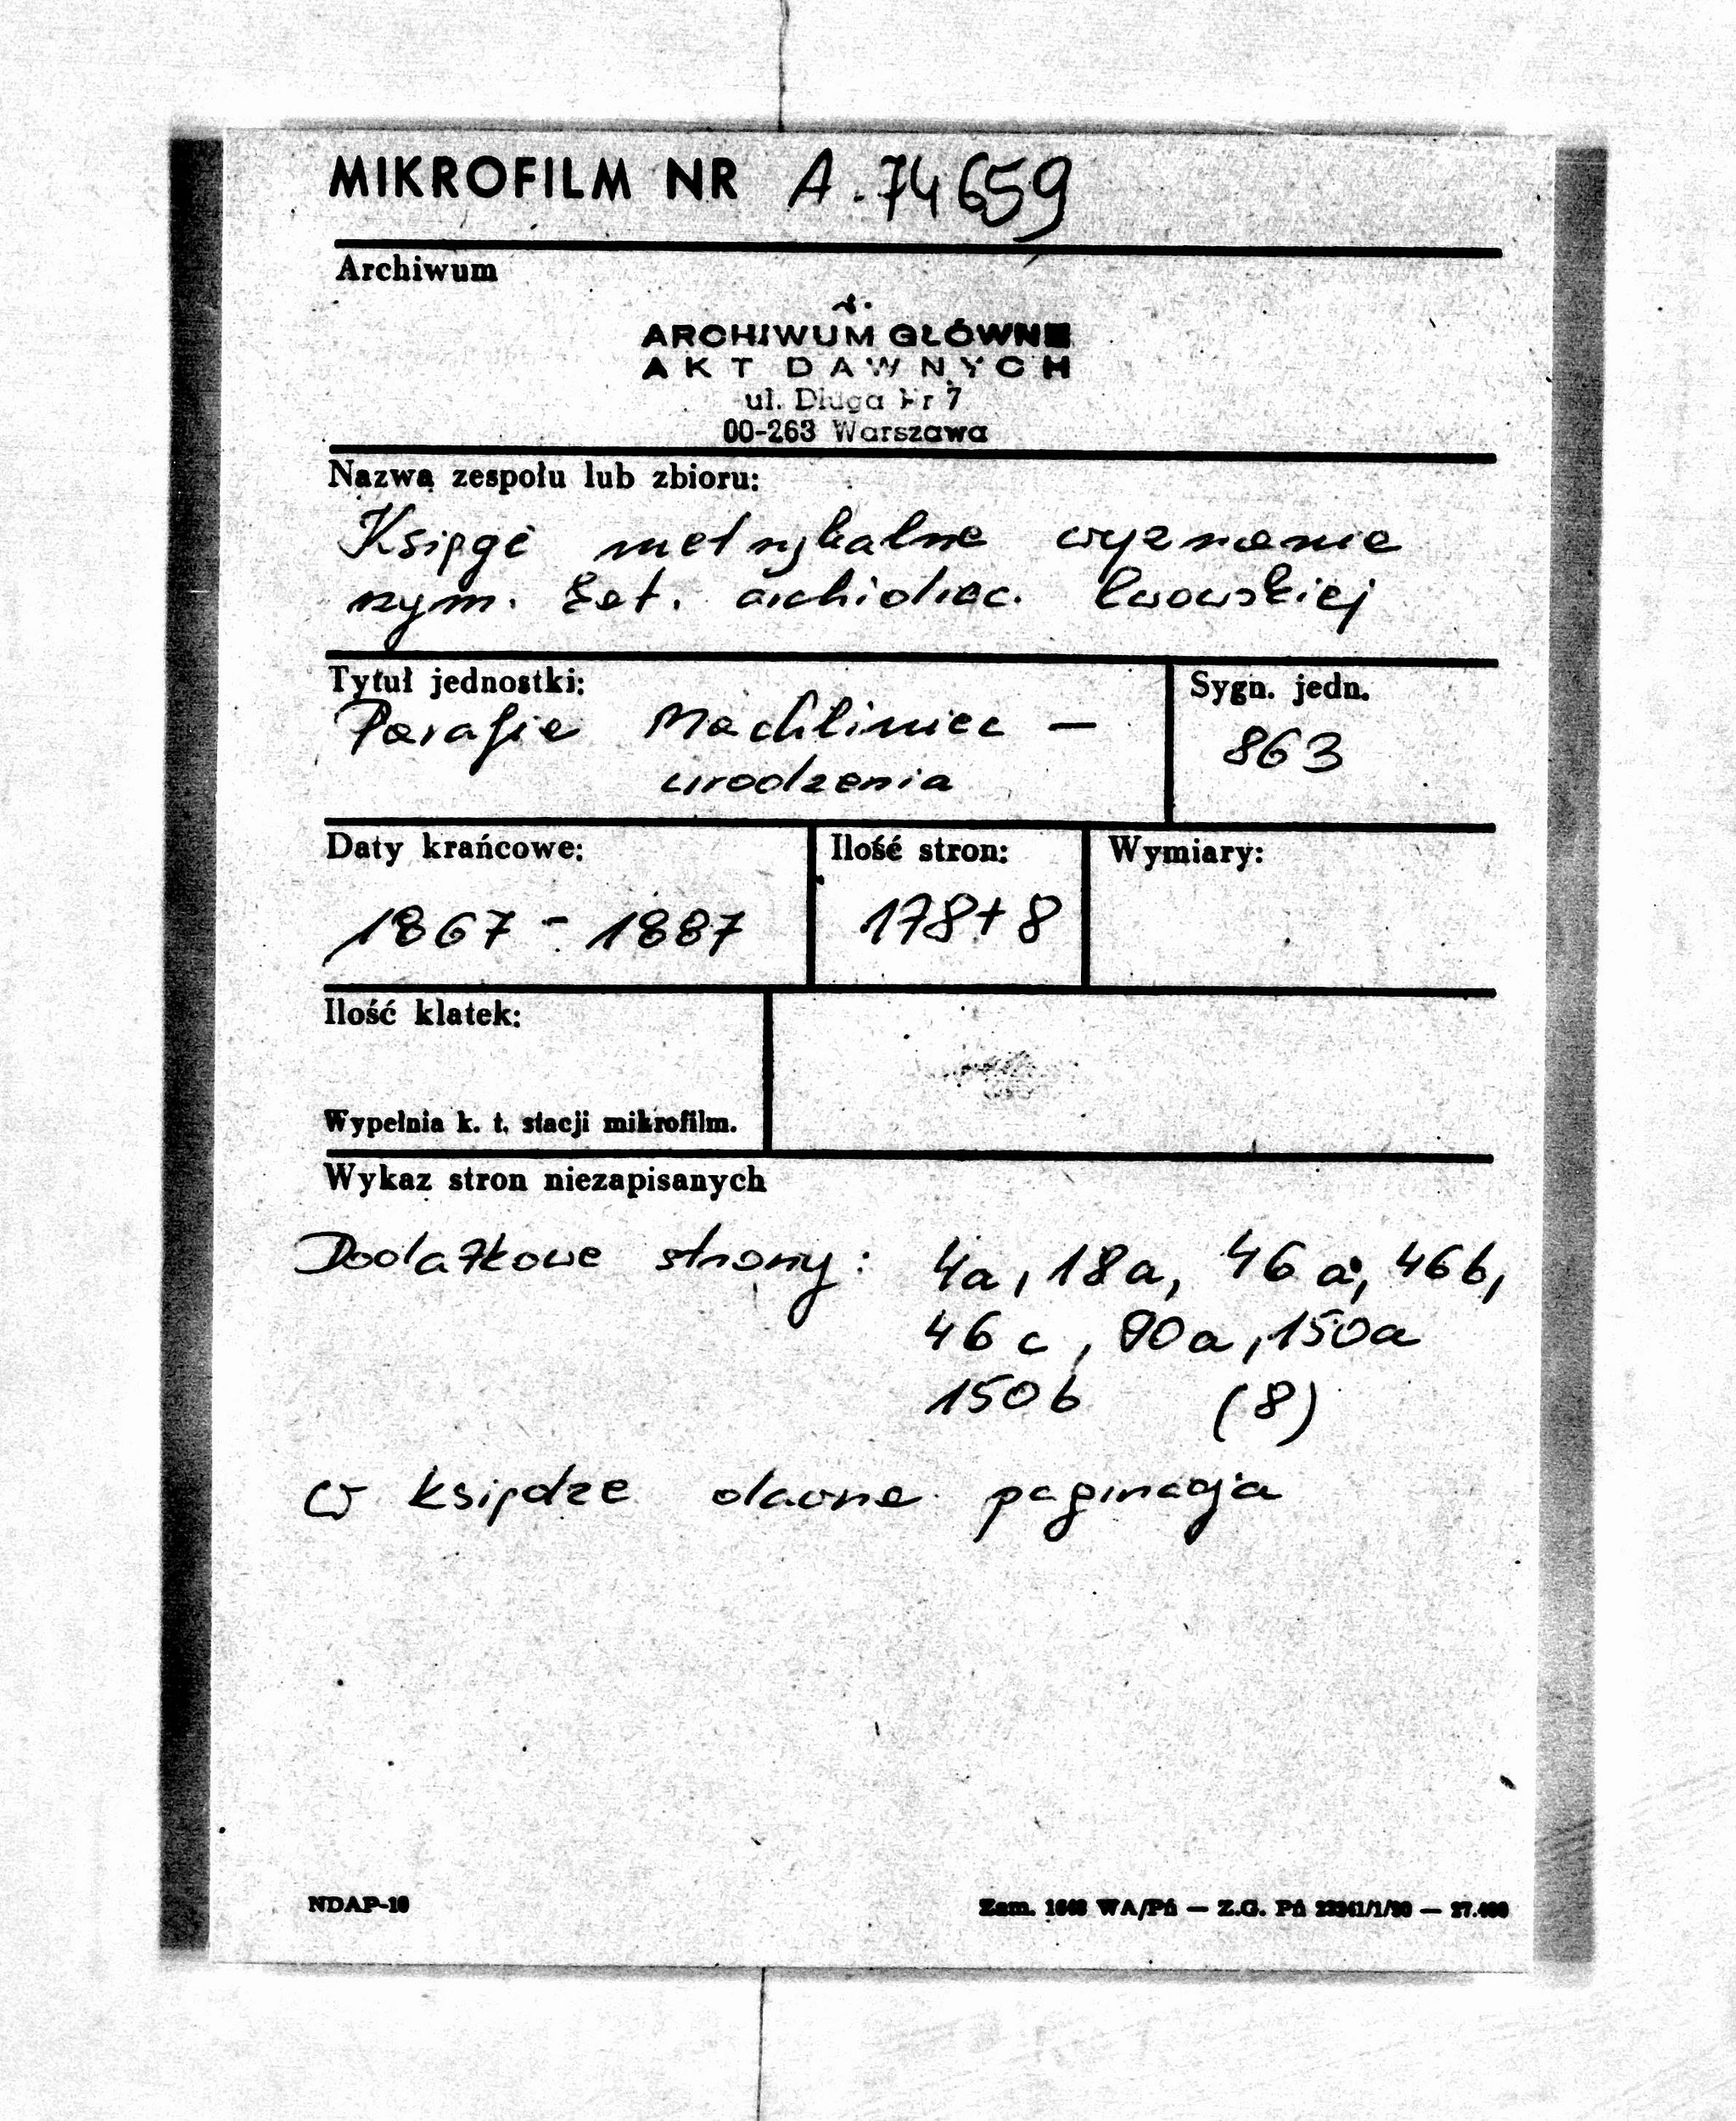 MIKROFILM NR A.74659
Archiwum
ARCHIWUM GŁÓWNE
AKT DAWNYCH
ul. Długa Nr 7
00-263 Warszawa
Nazwa zespołu lub zbioru:
Księgi metrykalne wyznania
rzym. kat. archidiec. lwowskiej
Tytuł jednostki:
Sygn. jedn.
Parafia Machliniec –
863
urodzenia
Daty krańcowe:
Ilość stron:
Wymiary:
1867 - 1887
178+8
Ilość klatek:
Wypełnia k. t. stacji mikrofilm.
Wykaz stron niezapisanych
Dodatkowe strony: 4a, 18a, 46a, 46b,
46c, 90a, 150a
150b (8)
W księdze dawna paginacja
NDAP-16
Zam. WA/Pń — Z.G. Pń — 27.400